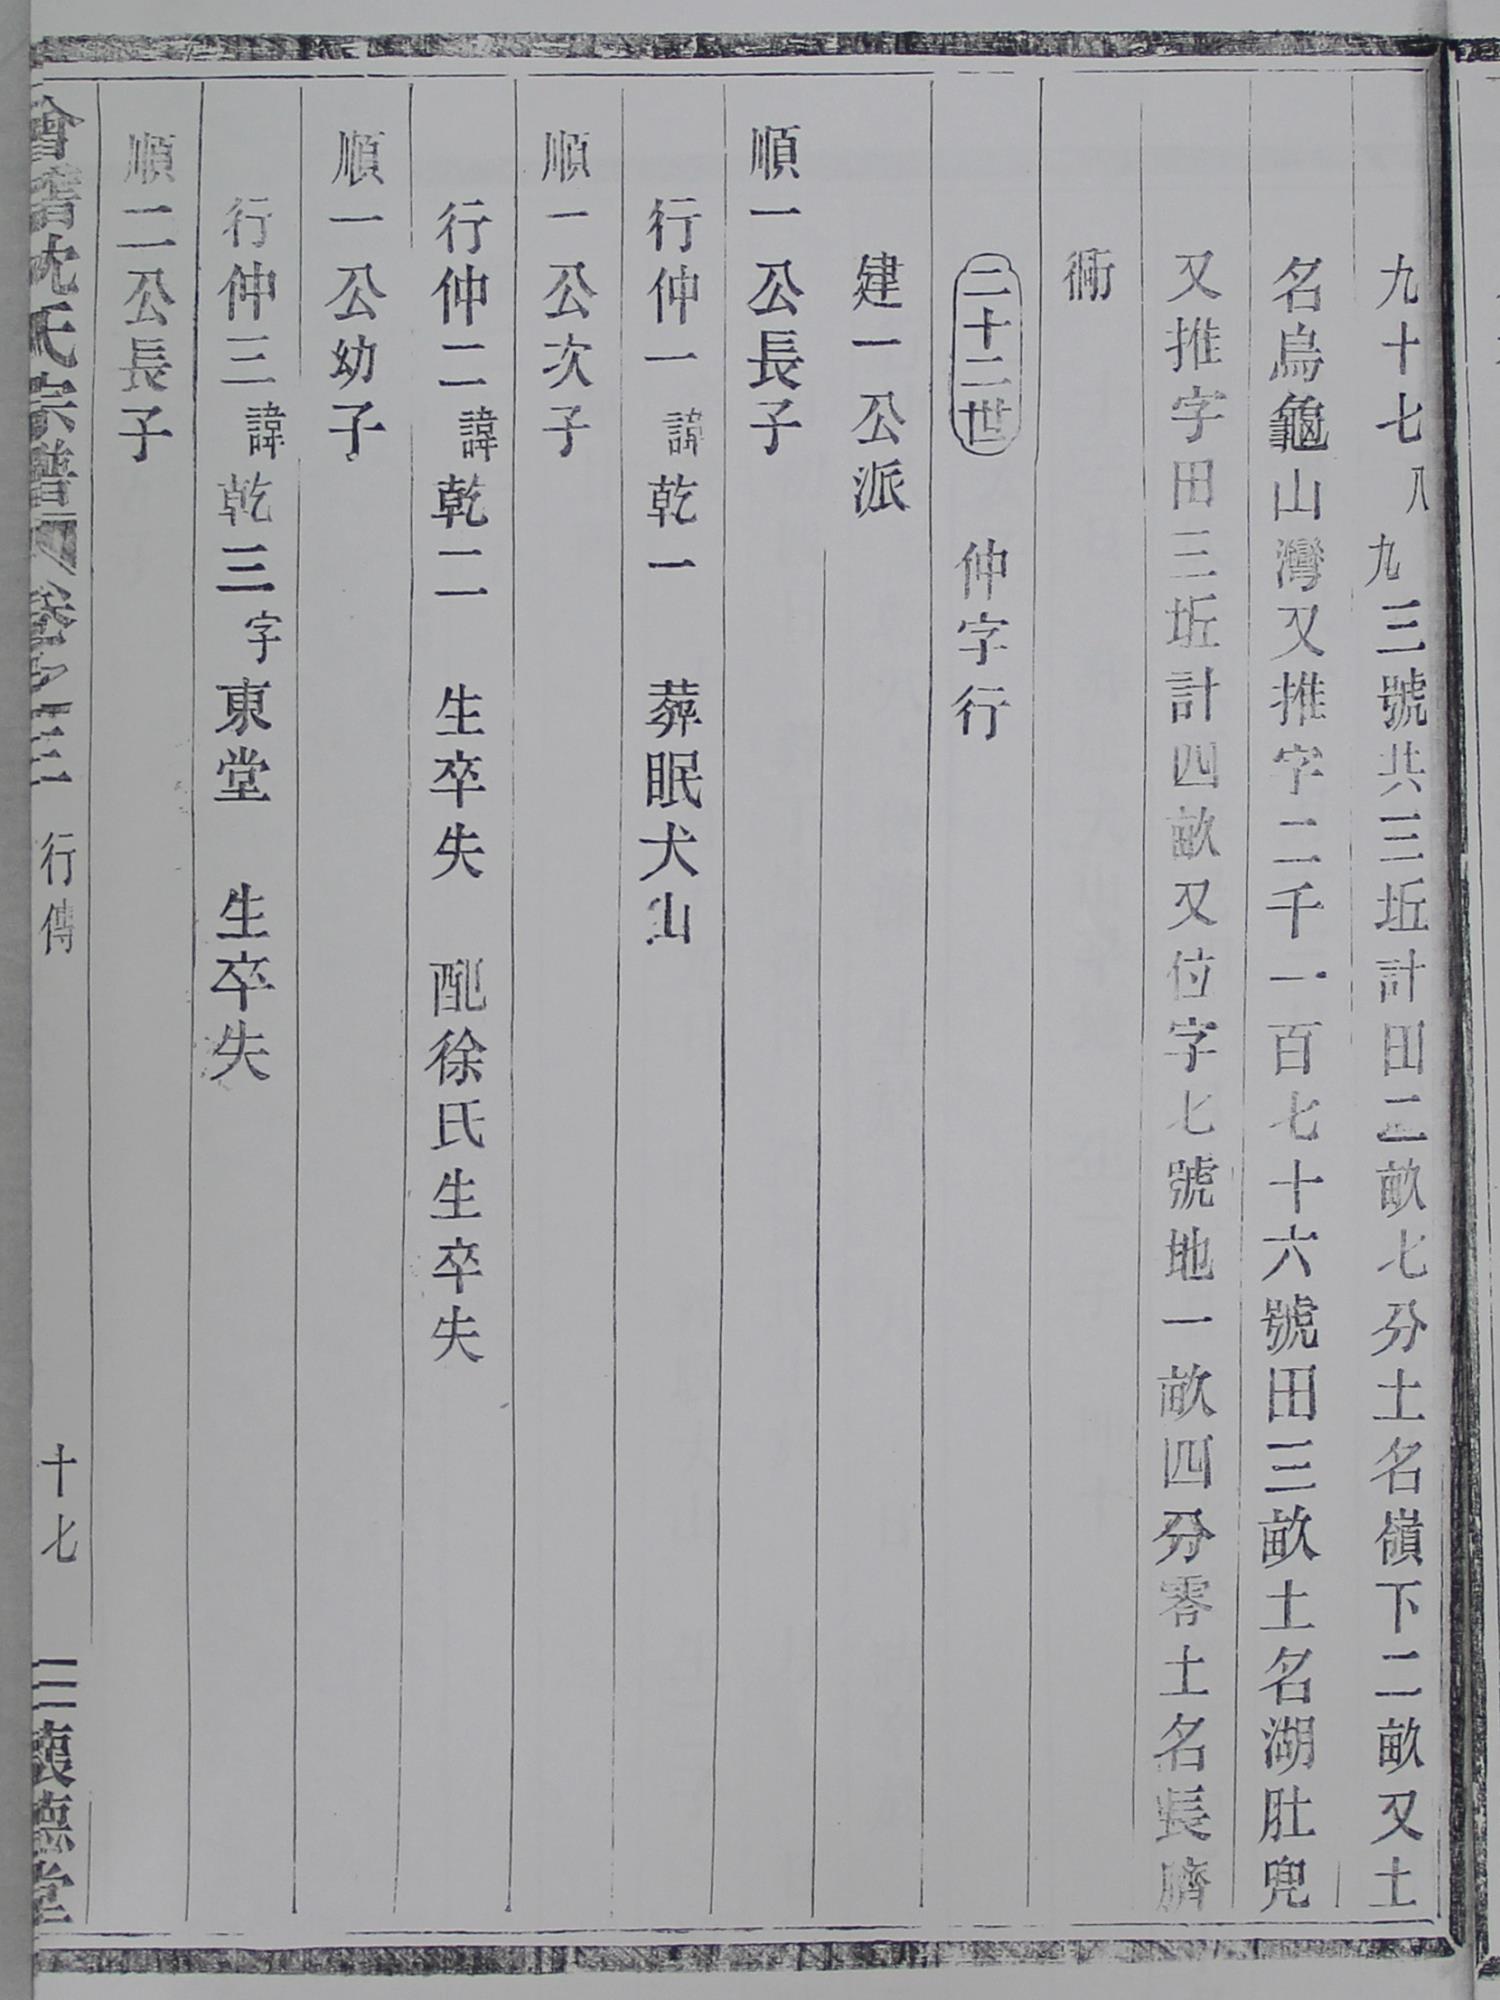 九十七八九三號共三坵計田二畝七分土名嶺下二畝又土
名烏龜山灣又推字二千一百七十六號田三畝土名湖肚兜
又推字田三坵計四畝又位字七號地一畝四分零土名長臍
衕
二十二世 仲字行
建一公派
順一公長子
行仲一諱乾一 葬眠犬山
順一公次子
行仲二諱乾二 生卒失 配徐氏生卒失
順一公幼子
行仲三諱乾三字東堂 生卒失
順二公長子
會稽沈氏宗譜 卷之三 行傳 十七 三懷德堂